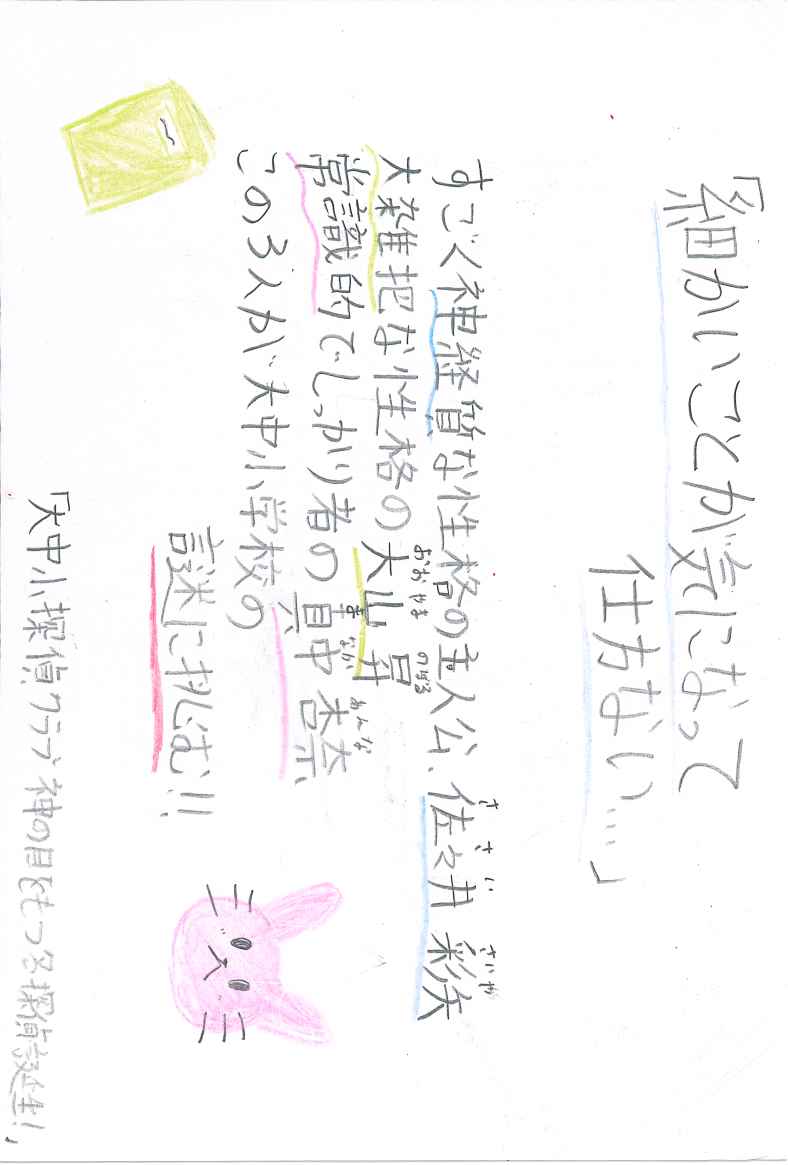 「細かいことが気になって
仕方ない…」
ささい さいや
すごく神経質な性格の主人公、佐々井 彩矢
おおやま のぼる
大雑把な性格の大山 昇
まなか あんな
常識的でしっかり者の真中 杏奈
この3人が大中小学校の
謎に挑む!!
「大中小探偵クラブ 神の目をもつ名探偵誕生!」